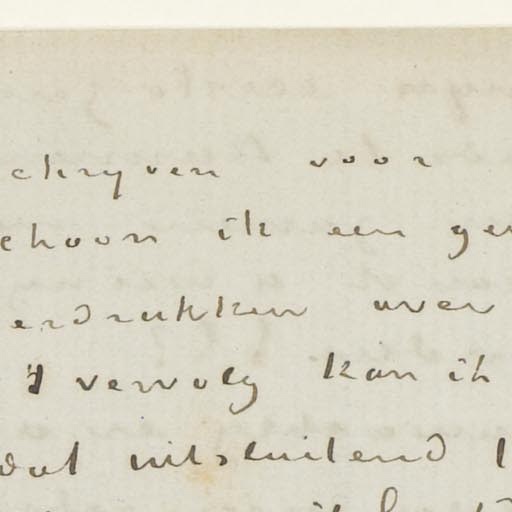 chryven voor
choon ik een ge
erdrukken over
't vervolg kan ik
dat uitsluitend